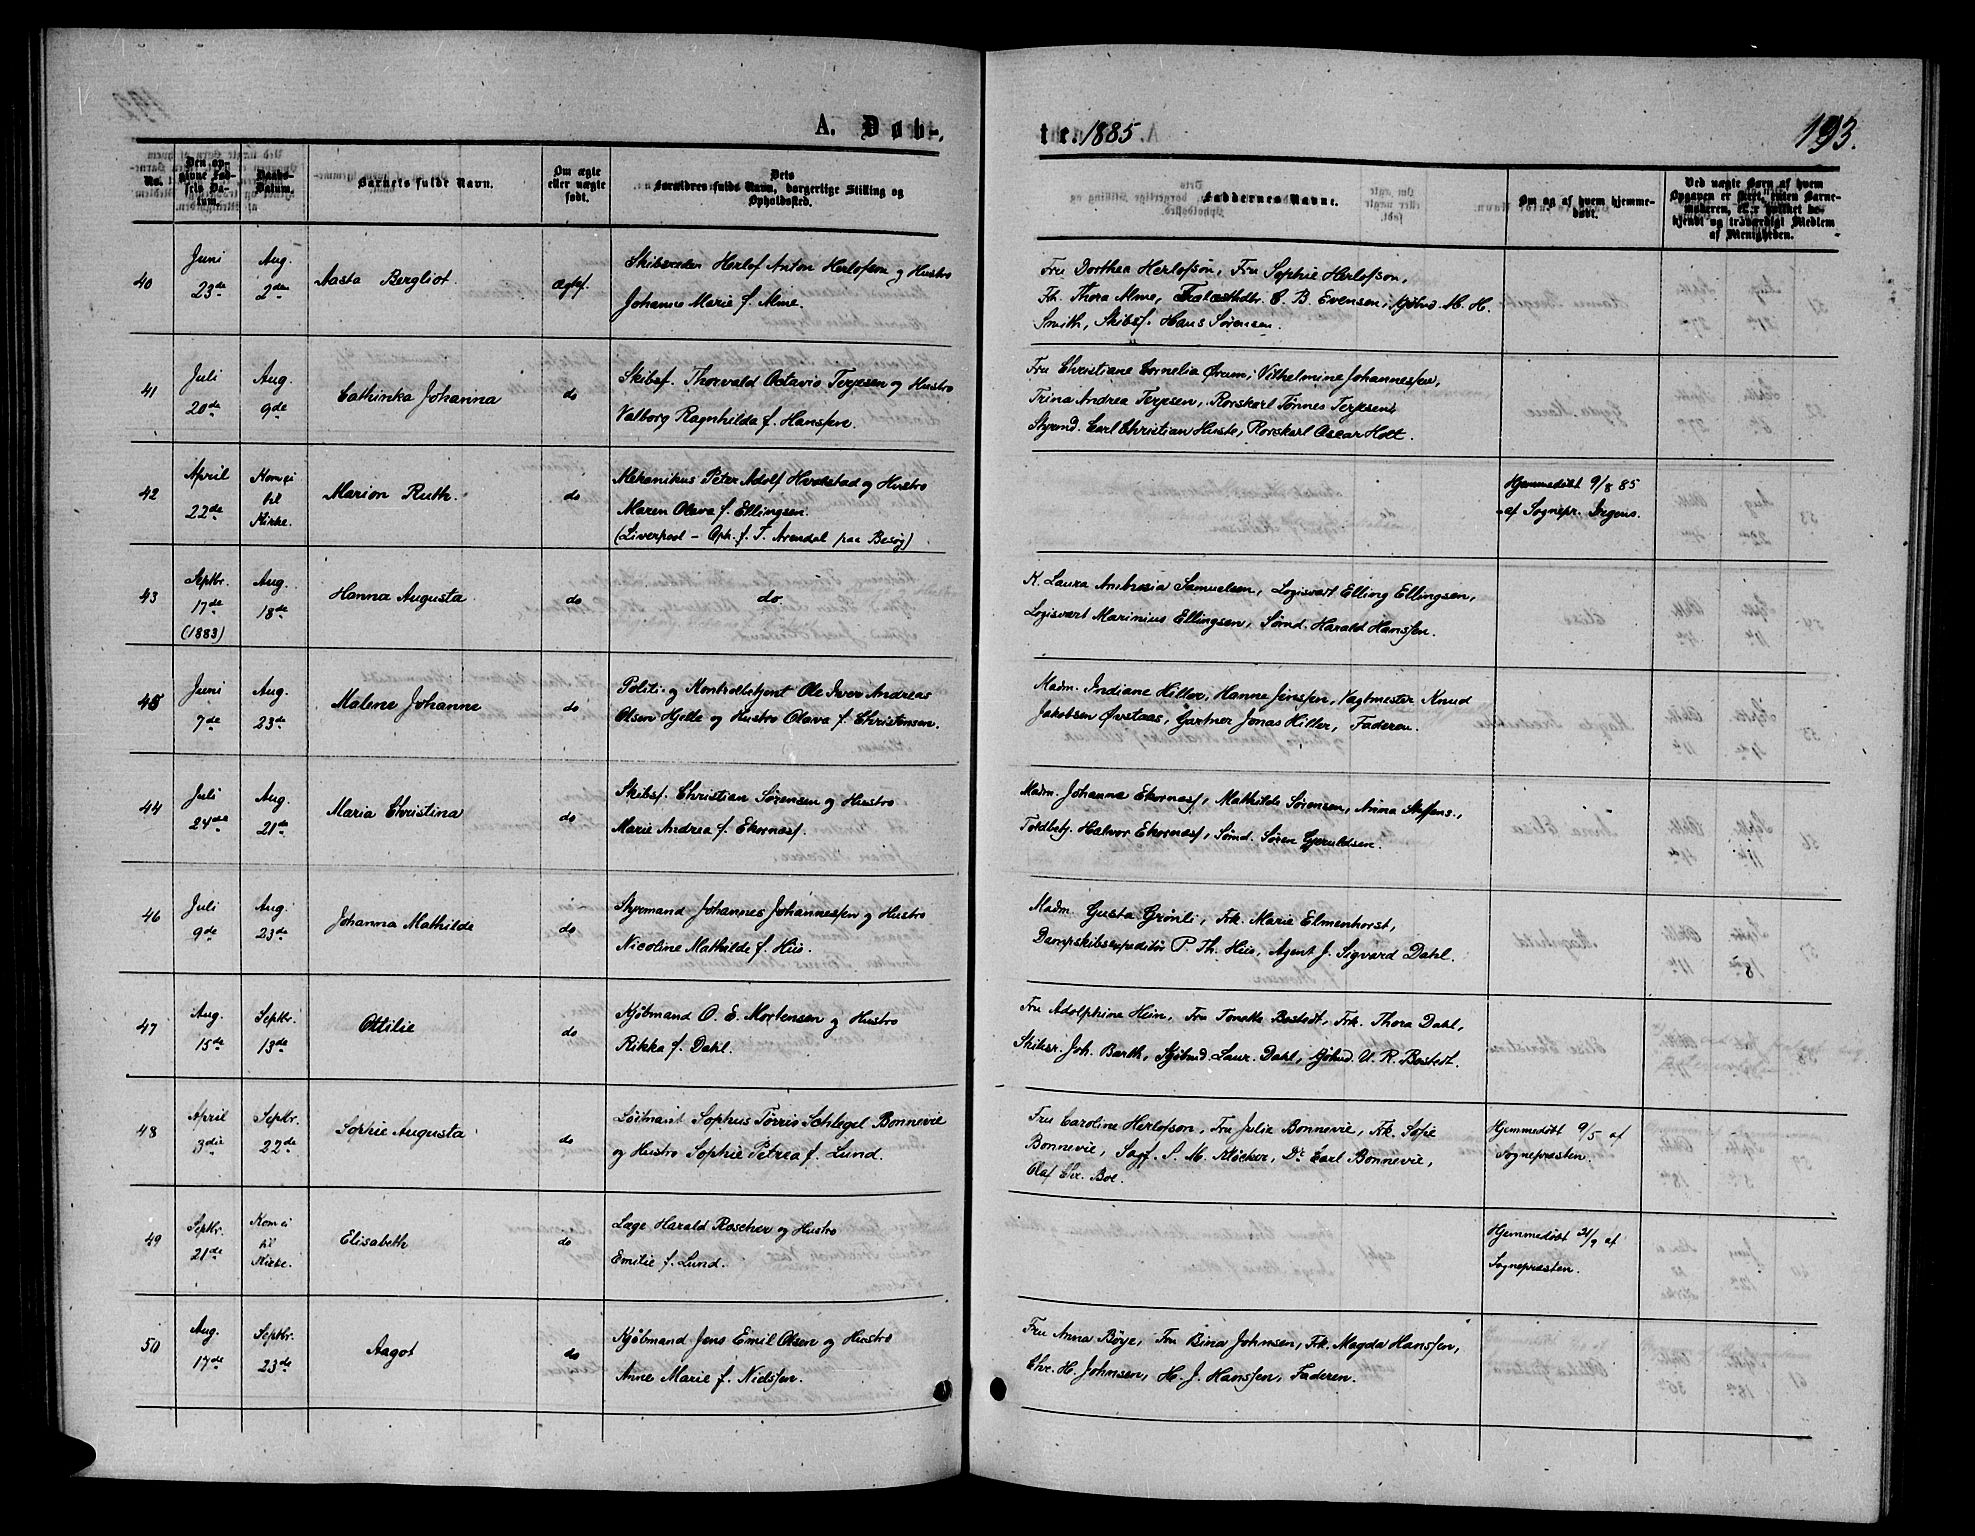 A. Døb-
te. 1885.
193.
No.
Den op-
givne Fød-
sels Da-
tum.
Daabs-
Datum.
Barnets fulde Navn.
Om ægte
eller uægte
født.
Dets
Forældres fulde Navn, borgerlige Stilling og
Opholdssted.
Faddernes Navne.
Om og af hvem hjemme-
døbt.
Ved uægte Børn af hvem
Opgaven er skeet, enten Barne-
moderen, el.r hvilket be-
kjendt og troværdigt Medlem
af Menigheden.
40
Juni
23de
Aug.
2den
Aasta Bergliot.
ægte.
Skibsreder Herlof Anton Herlofson og Hustro
Johanne Marie f. Alme.
Fru Dorthea Herlofson, Fru Sophie Herlofson,
Frk. Thora Alme, C. B. Evensen, Kjøbmd. M. H.
Smith, Skibsf. Hans Sørensen.
41
Juli
20de
Aug.
9de
Cathinka Johanna
do
Skibsf. Thorvald Octavio Terjesen og Hustro
Valborg Ragnhilda f. Hanssen.
Fru Christiane Cornelia Ørum, Vilhelmine Johannessen,
Trina Andrea Terjesen, Rorskarl Tønnes Terjesen,
Styrmd. Carl Christian Huste, Rorskarl Oscar Holt.
42
April
22de
Kom ei
til
Kirke.
Marion Ruth.
do
Mekanikus Peter Adolf Hvedstad og Hustro
Maren Olava f. Ellingsen.
(Liverpool - Oph. f. T. Arendal paa Besøg)
Hjemmedøbt 9/8 85
af Sognepr. Irgens.
43
Septbr.
17de
(1883)
Aug.
18de
Hanna Augusta
do
do.
K. Laura Ambrosia Samuelsen, Logisvært Elling Ellingsen,
Logisvært Marinius Ellingsen, Sømd. Harald Hanssen.
45
Juni
7de
Aug.
23de
Malene Johanne
do
Politi- og Kontrolbetjent Ole Iver Andreas
Olsen Hjelle og Hustro Olava f. Christensen.
Madm. Indiane Hiller, Hanne Jenssen, Vagtmester Knud
Jakobsen Øvstaas, Gartner Jonas Hiller, Faderen.
44
Juli
24de
Aug.
21de
Maria Christina
do
Skibsf. Christian Sørensen og Hustro
Marie Andrea f. Ekornæss.
Madm. Johanne Ekornæss, Mathilde Sørensen, Anna Steffens.,
Toldbetj. Halvor Ekornæss, Sømd. Søren Gjeruldsen.
46
Juli
9de
Aug.
23de
Johanna Mathilde
do
Styrmand Johannes Johannessen og Hustro
Nicoline Mathilde f. Hiis.
Madm. Gusta Grønli, Frk. Marie Elmenhorst,
Dampskibsexpeditør P. Th. Hiis, Agent J. Sigvard Dahl.
47
Aug.
15de
Septbr.
13de
Ottilie
do
Kjøbmand O. E. Mortensen og Hustro
Rikka f. Dahl.
Fru Adolphine Hein, Fru Tonette Bestedt, Frk. Thora Dahl,
Skibsr. Joh. Barth, Kjøbmd. Laur. Dahl, Kjøbmd. U. R. Bestedt.
48
April
3die
Septbr.
22de
Sophie Augusta
do
Løitnant Sophus Tørris Schlegel Bonnevie
og Hustro Sophie Petrea f. Lund.
Fru Caroline Herlofson, Fru Julie Bonnevie, Frk. Sofie
Bonnevie, Sagf. S. M. Kløcker, Dr. Carl Bonnevie,
Olaf Chr. Boe.
Hjemmedøbt 9/5 af
Sognepræsten.
49
Septbr.
21de
Kom ei
til
Kirke.
Elisabeth
do
Læge Harald Roscher og Hustro
Emilie f. Lund.
Hjemmedøbt 21/9 af
Sognepræsten.
50
Aug.
17de
Septbr.
23de
Aagot
do
Kjøbmand Jens Emil Olsen og Hustro
Anne Marie f. Nielssen.
Fru Anna Bøye, Fru Bina Johnsen, Frk. Magda Hanssen,
Chr. H. Johnsen, H. J. Hanssen, Faderen.